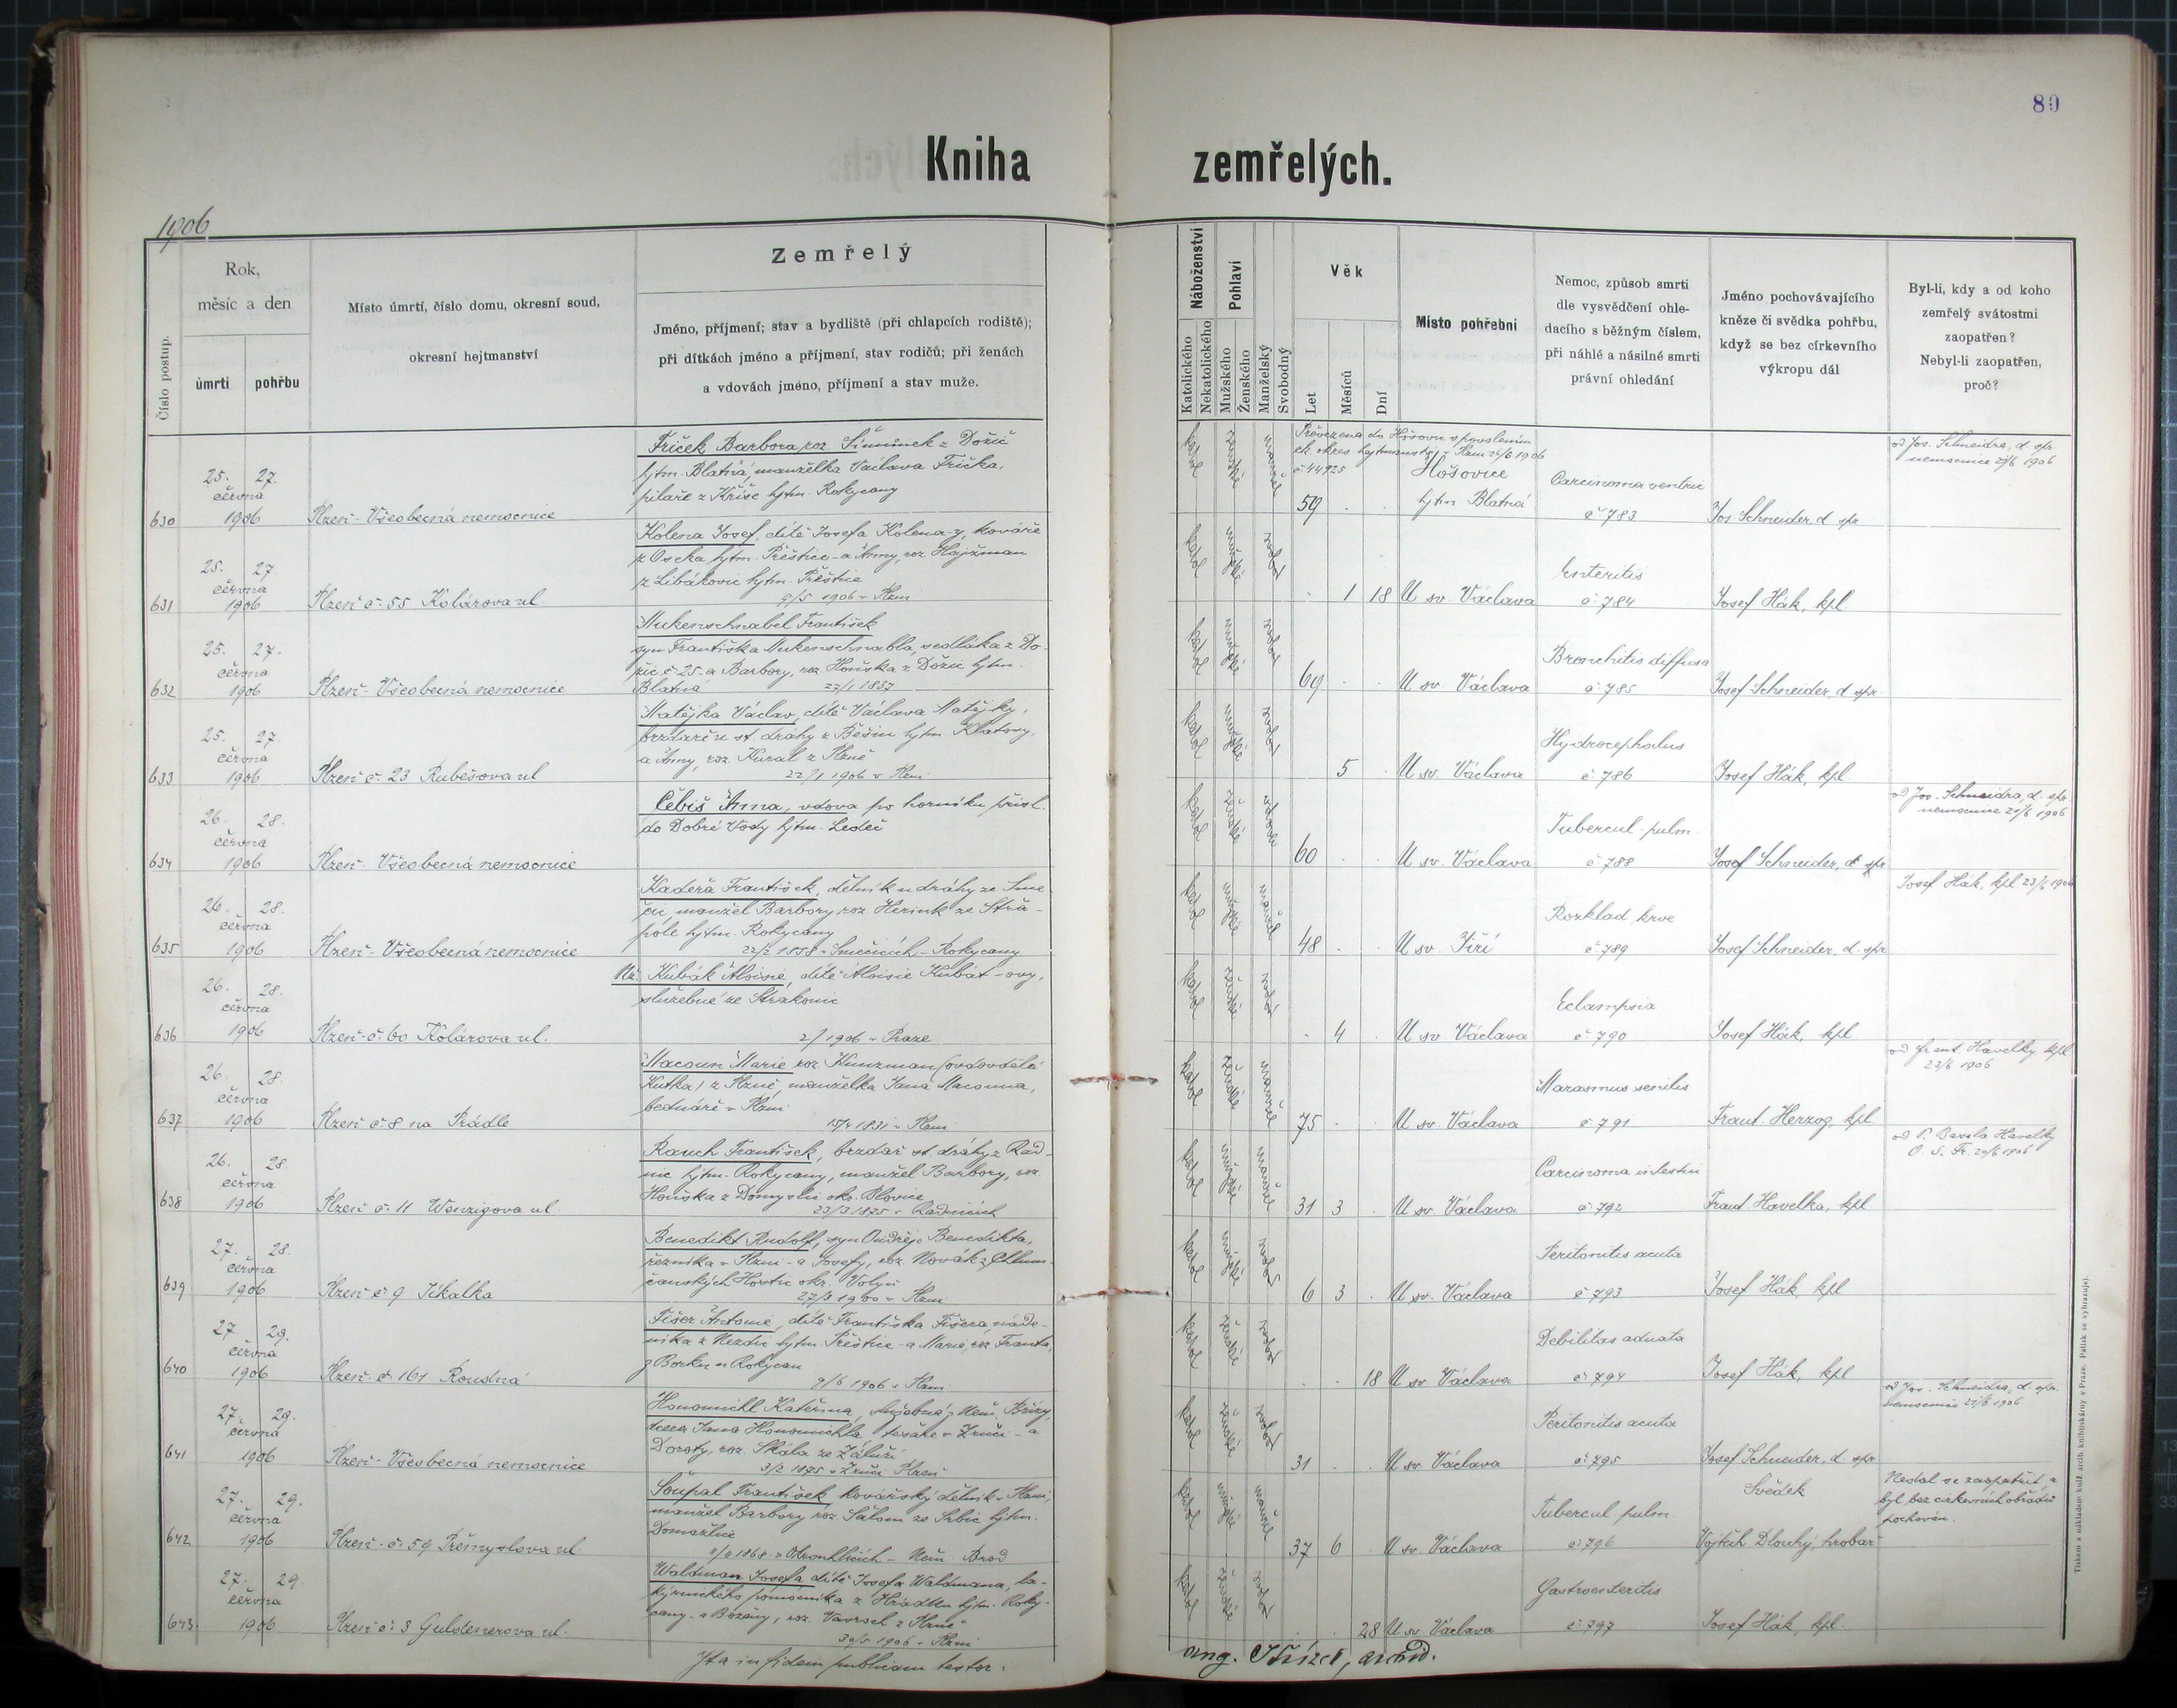 80
Kniha zemřelých.
1906
Číslo postup.
Rok,
měsíc a den
úmrtí
pohřbu
Místo úmrtí, číslo domu, okresní soud,
okresní hejtmanství
Zemřelý
Jméno, příjmení; stav a bydliště (při chlapcích rodiště);
při dítkách jméno a příjmení, stav rodičů; při ženách
a vdovách jméno, příjmení a stav muže.
Náboženství
Katolického
Nekatolického
Pohlaví
Mužského
Ženského
Manželský
Svobodný
Věk
Let
Měsíců
Dní
Místo pohřební
Nemoc, způsob smrti
dle vysvědčení ohle-
dacího s běžným číslem,
při náhlé a násilné smrti
právní ohledání
Jméno pochovávajícího
kněze či svědka pohřbu,
když se bez církevního
výkropu dál
Byl-li, kdy a od koho
zemřelý svátostmi
zaopatřen?
Nebyl-li zaopatřen,
proč?
630
25. 27.
června
1906
Plzeň - Všeobecná nemocnice
Friček Barbora, roz. Šimůnek z Dožic
hjtm. Blatná, manželka Václava Frička,
pilaře z Kříše hjtm. Rokycany
59
Hošovice
hjtm Blatná
Carcinoma ventric
č 783
Jos Schneider, d. spr
od Jos. Schneidra, d. spr.
nemocnice
631
25. 27.
června
1906
Plzeň č. 55 Kolárova ul
Kolena Josef, dítě Josefa Kolena-y, kováře
z Oseka hjtm. Přeštice - a Anny, roz. Hajžman
z Libákovic hjtm. Přeštice
9/5 1906 v Plzni
1 18
U sv. Václava
Enteritis
č. 784
Josef Hák, kpl.
632
25. 27.
června
1906
Plzeň - Všeobecná nemocnice
Mukenschnabel František
syn Františka Mukenschnabla, sedláka z Do-
žic č 25 - a Barbory, roz. Houška z Dožic hjtm.
Blatná 22/1 1837
69
U sv. Václava
Bronchitis diffusa
č. 785
Josef Schneider, d. spr.
633
25. 27.
června
1906
Plzeň č. 23 Rubešova ul
Matějka Václav, dítě Václava Matějky,
brzdaře u st. dráhy z Běšin hjtm. Klatovy,
a Anny, roz. Kural z Plzně
22/1 1906 v Plzni
5
U sv. Václava
Hydrocephalus
č. 786
Josef Hák, kpl.
634
26. 28.
června
1906
Plzeň - Všeobecná nemocnice
Čebiš Anna, vdova po horníku přísl.
do Dobré Vody hjtm. Ledeč
60
U sv. Václava
Tubercul. pulm.
č. 788
Josef Schneider, d. spr
od Jos. Schneidra, d. spr.
nemocnice
635
26. 28.
června
1906
Plzeň - Všeobecná nemocnice
Kadeřa František, dělník u dráhy ze Sme-
čic, manžel Barbory, roz Herink ze Stra-
pole hjtm. Rokycany
22/2 1858 v Smečicích - Rokycany
48
U sv. Jiří
Rozklad krve
č. 789
Josef Schneider, d. spr
Josef Hák, kpl 23/6 1906
636
26. 28.
června
1906
Plzeň č. 60 Kolárova ul.
Nz. Kubát Aloisie, dítě Aloisie Kubát-ovy,
služebné ze Strakonic
2/ 1906 v Praze
4
U sv. Václava
Eclampsia
č. 790
Josef Hák, kpl.
637
26. 28.
června
1906
Plzeň č. 8 na Prádle
Macoun Marie roz. Kunzman (ovdovělá
Kutka) z Plzně, manželka Jana Macouna,
bednáře v Plzni
1831 v Plzni
75
U sv. Václava
Marasmus senilis
č. 791
Frant. Herzog, kpl
od Frant. Havelky, kpl
23/6 1906
638
26. 28.
června
1906
Plzeň č. 11 Wenzigova ul.
Rauch František, brzdař st. dráhy z Rad-
nic hjtm. Rokycany, manžel Barbory, roz.
Houška z Domyslic okr. Blovice
23/3 1875 v Radnicích
31 3
U sv. Václava
Carcinoma intestini
č. 792
Frant Havelka, kpl
639
27. 28.
června
1906
Plzeň č 9 Jikalka
Benedikt Rudolf, syn Ondřeje Benedikta,
řezníka v Plzni - a Josefy, roz. Novák z Chlum-
čanských Hoštic okr. Volyň
27/3 1900 v Plzni
6 3
U sv. Václava
Peritonitis acuta
č. 793
Josef Hák, kpl
640
27. 29.
června
1906
Plzeň č. 161 Roudná
Fišer Antonie, dítě Františka Fišera, náde-
níka z Nezdic hjtm. Přeštice - a Marie, roz. Franta,
z Borku u Rokycan
9/6 1906 v Plzni
18
U sv. Václava
Debilitas adnata
č. 794
Josef Hák, kpl
641
27. 29.
června
1906
Plzeň - Všeobecná nemocnice
Honomichl Kateřina, služebná z Něm. Břízy,
dcera Jana Honomichla tesaře v Zruči - a
Doroty, roz. Skála ze Záluží
3/2 1875 v Zruči Plzeň
31
U sv. Václava
Peritonitis acuta
č. 795
Josef Schneider, d. spr
od Jos. Schneidra, d. spr.
nemocnice
642
27. 29.
června
1906
Plzeň - č. 59 Přemyslova ul.
Šoupal František, kovářský dělník v Plzni,
manžel Barbory roz. Šalom ze Srbic hjtm.
Domažlice
1868 v Okrouhlicích - Něm. Brod
37 6
U sv. Václava
Tubercul. pulm.
č. 796
Svědek
Vojtěch Dlouhý, hrobař
Nedal se zaopatřiti, a
byl bez církevních obřadů
pochován.
643.
27. 29.
června
1906
Plzeň č. 3 Guldenerova ul.
Waldman Josefa dítě Josefa Waldmana, la-
kýrnického pomocníka z Hrádku hjtm. Roky-
cany - a Boženy, roz. Vavroch z Plzně
30/5 1906 v Plzni
28
U sv. Václava
Gastroenteritis
č. 797
Josef Hák, kpl.
Ita in fidem publicam testor.
Tiskem a nákladem kníž. arcib. knihtiskárny v Praze. Patisk se vyhrazuje).